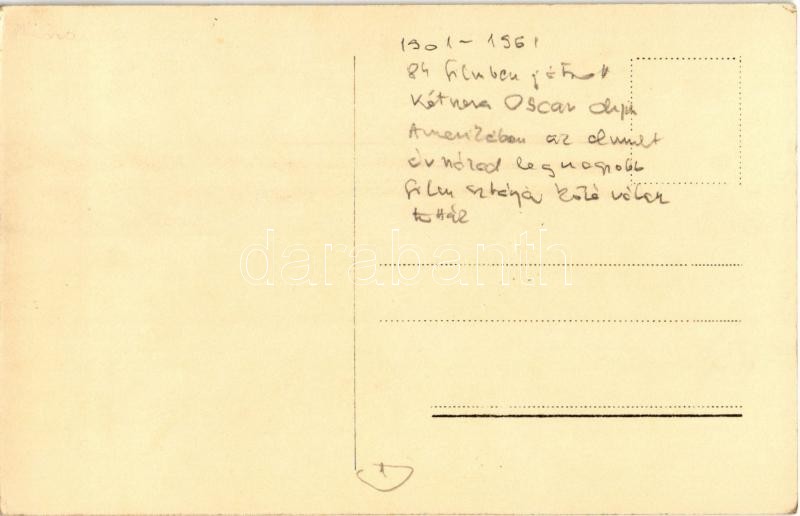 1901 - 1961
84 filmben játszott
Kétszeres Oscar díjas
Amerikában az elmult
évszázad legnagyobb
film sztárja közé válasz
tották
darabanth